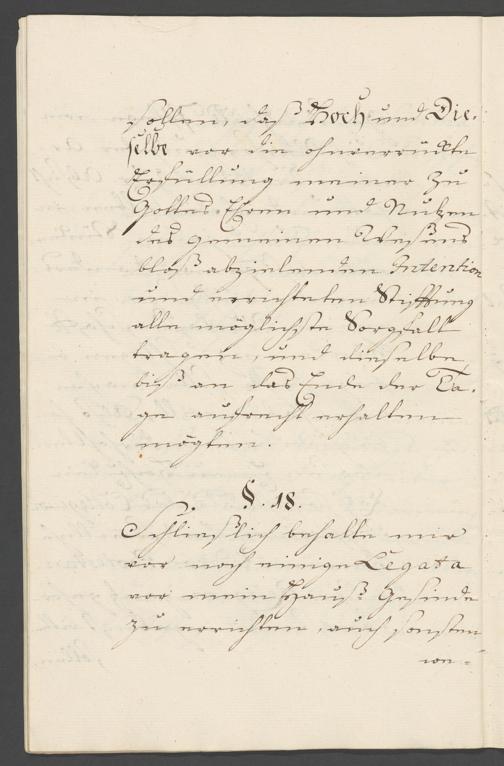 sollen, daß Hoch und Die-
selbe vor die ohnverrückte
Erfüllung meiner zu
Gottes Ehren und Nutzen
des gemeinen Wesens
bloß abzielenden Intention
und errichteten Stifftung
alle möglichste Sorgfalt
tragen, und dieselbe
biß an das Ende der Ta-
ge aufrecht erhalten
mögten.
§. 18.
Schließlich behalte mir
vor noch einige Legata
vor mein Hauß Gesinde
zu errichten, auch sonsten